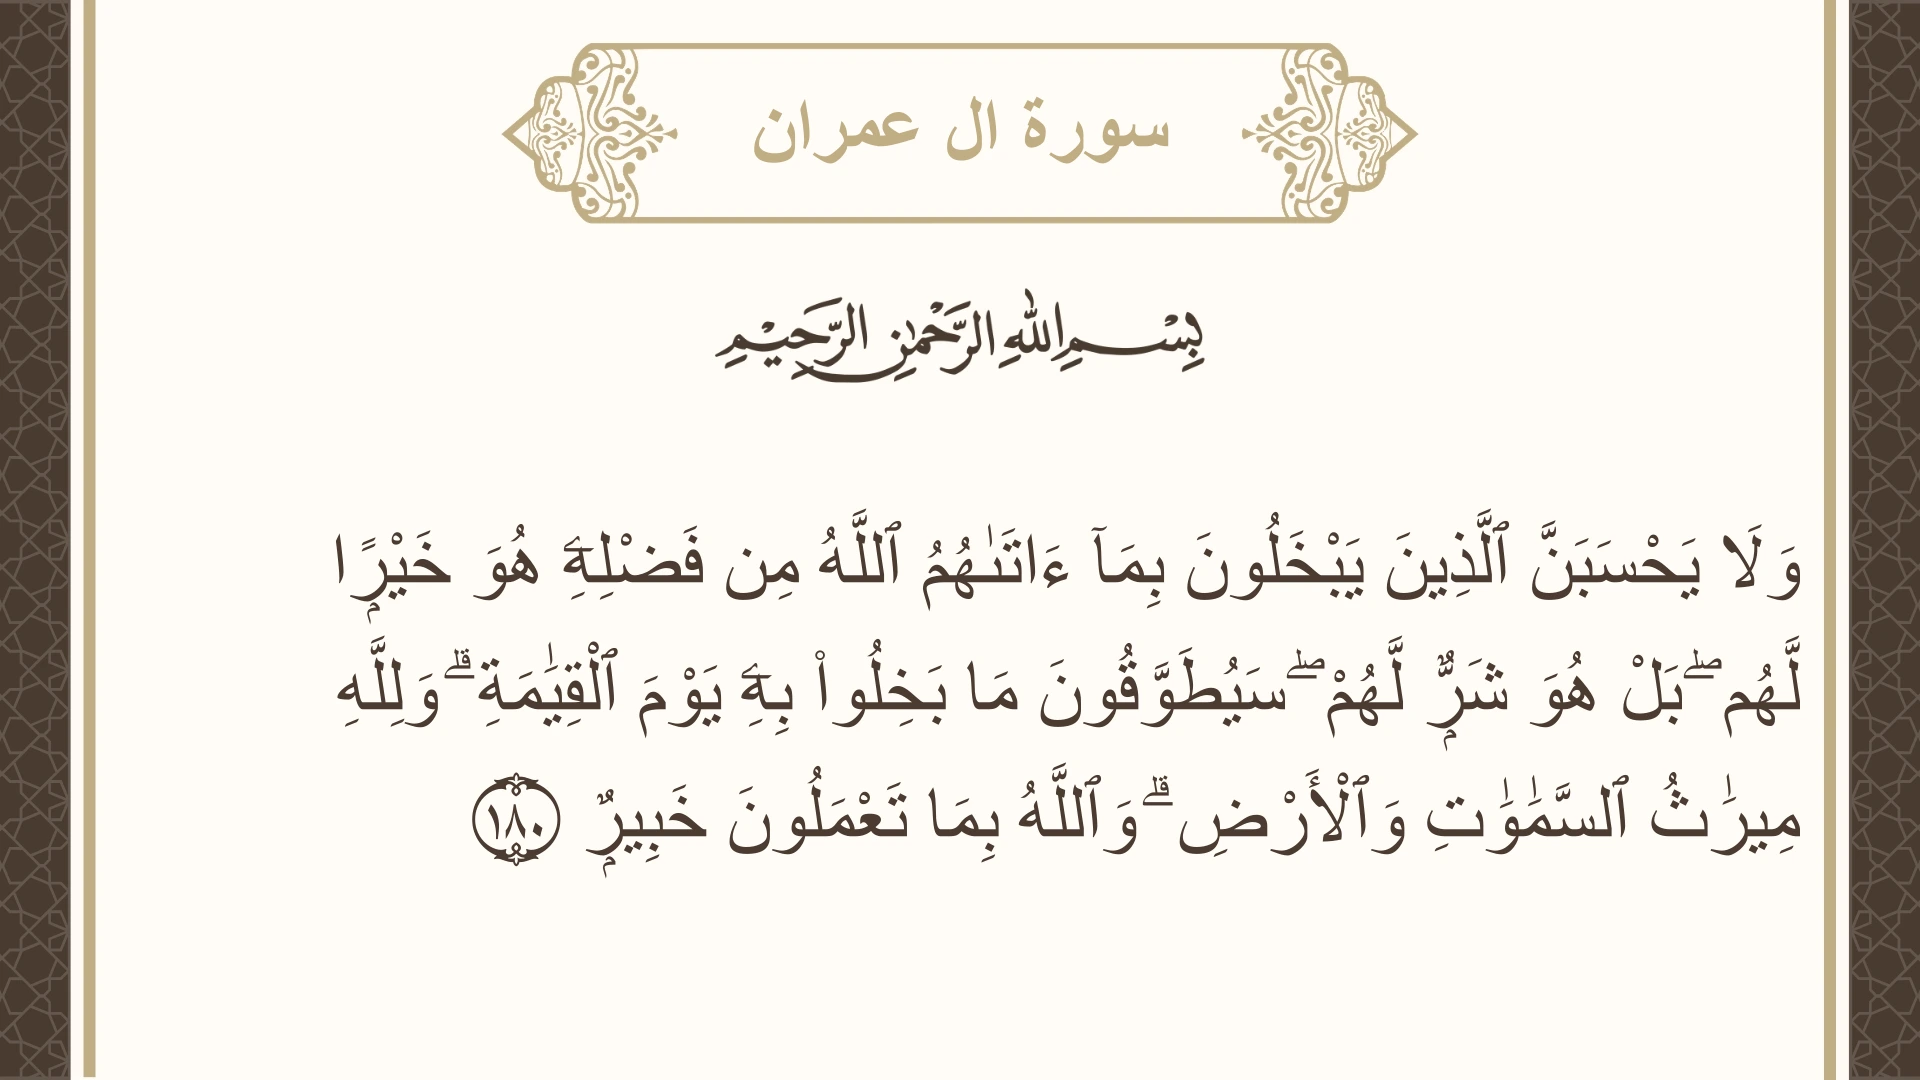 سورة ال عمران
بِسْمِ اللهِ الرَّحْمٰنِ الرَّحِيْمِ
وَلَا يَحْسَبَنَّ ٱلَّذِينَ يَبْخَلُونَ بِمَآ ءَاتَىٰهُمُ ٱللَّهُ مِن فَضْلِهِۦ هُوَ خَيْرًۭا
لَّهُم ۖ بَلْ هُوَ شَرٌّۭ لَّهُمْ ۖ سَيُطَوَّقُونَ مَا بَخِلُوا۟ بِهِۦ يَوْمَ ٱلْقِيَٰمَةِ ۗ وَلِلَّهِ
مِيرَٰثُ ٱلسَّمَٰوَٰتِ وَٱلْأَرْضِ ۗ وَٱللَّهُ بِمَا تَعْمَلُونَ خَبِيرٌۭ ١٨٠